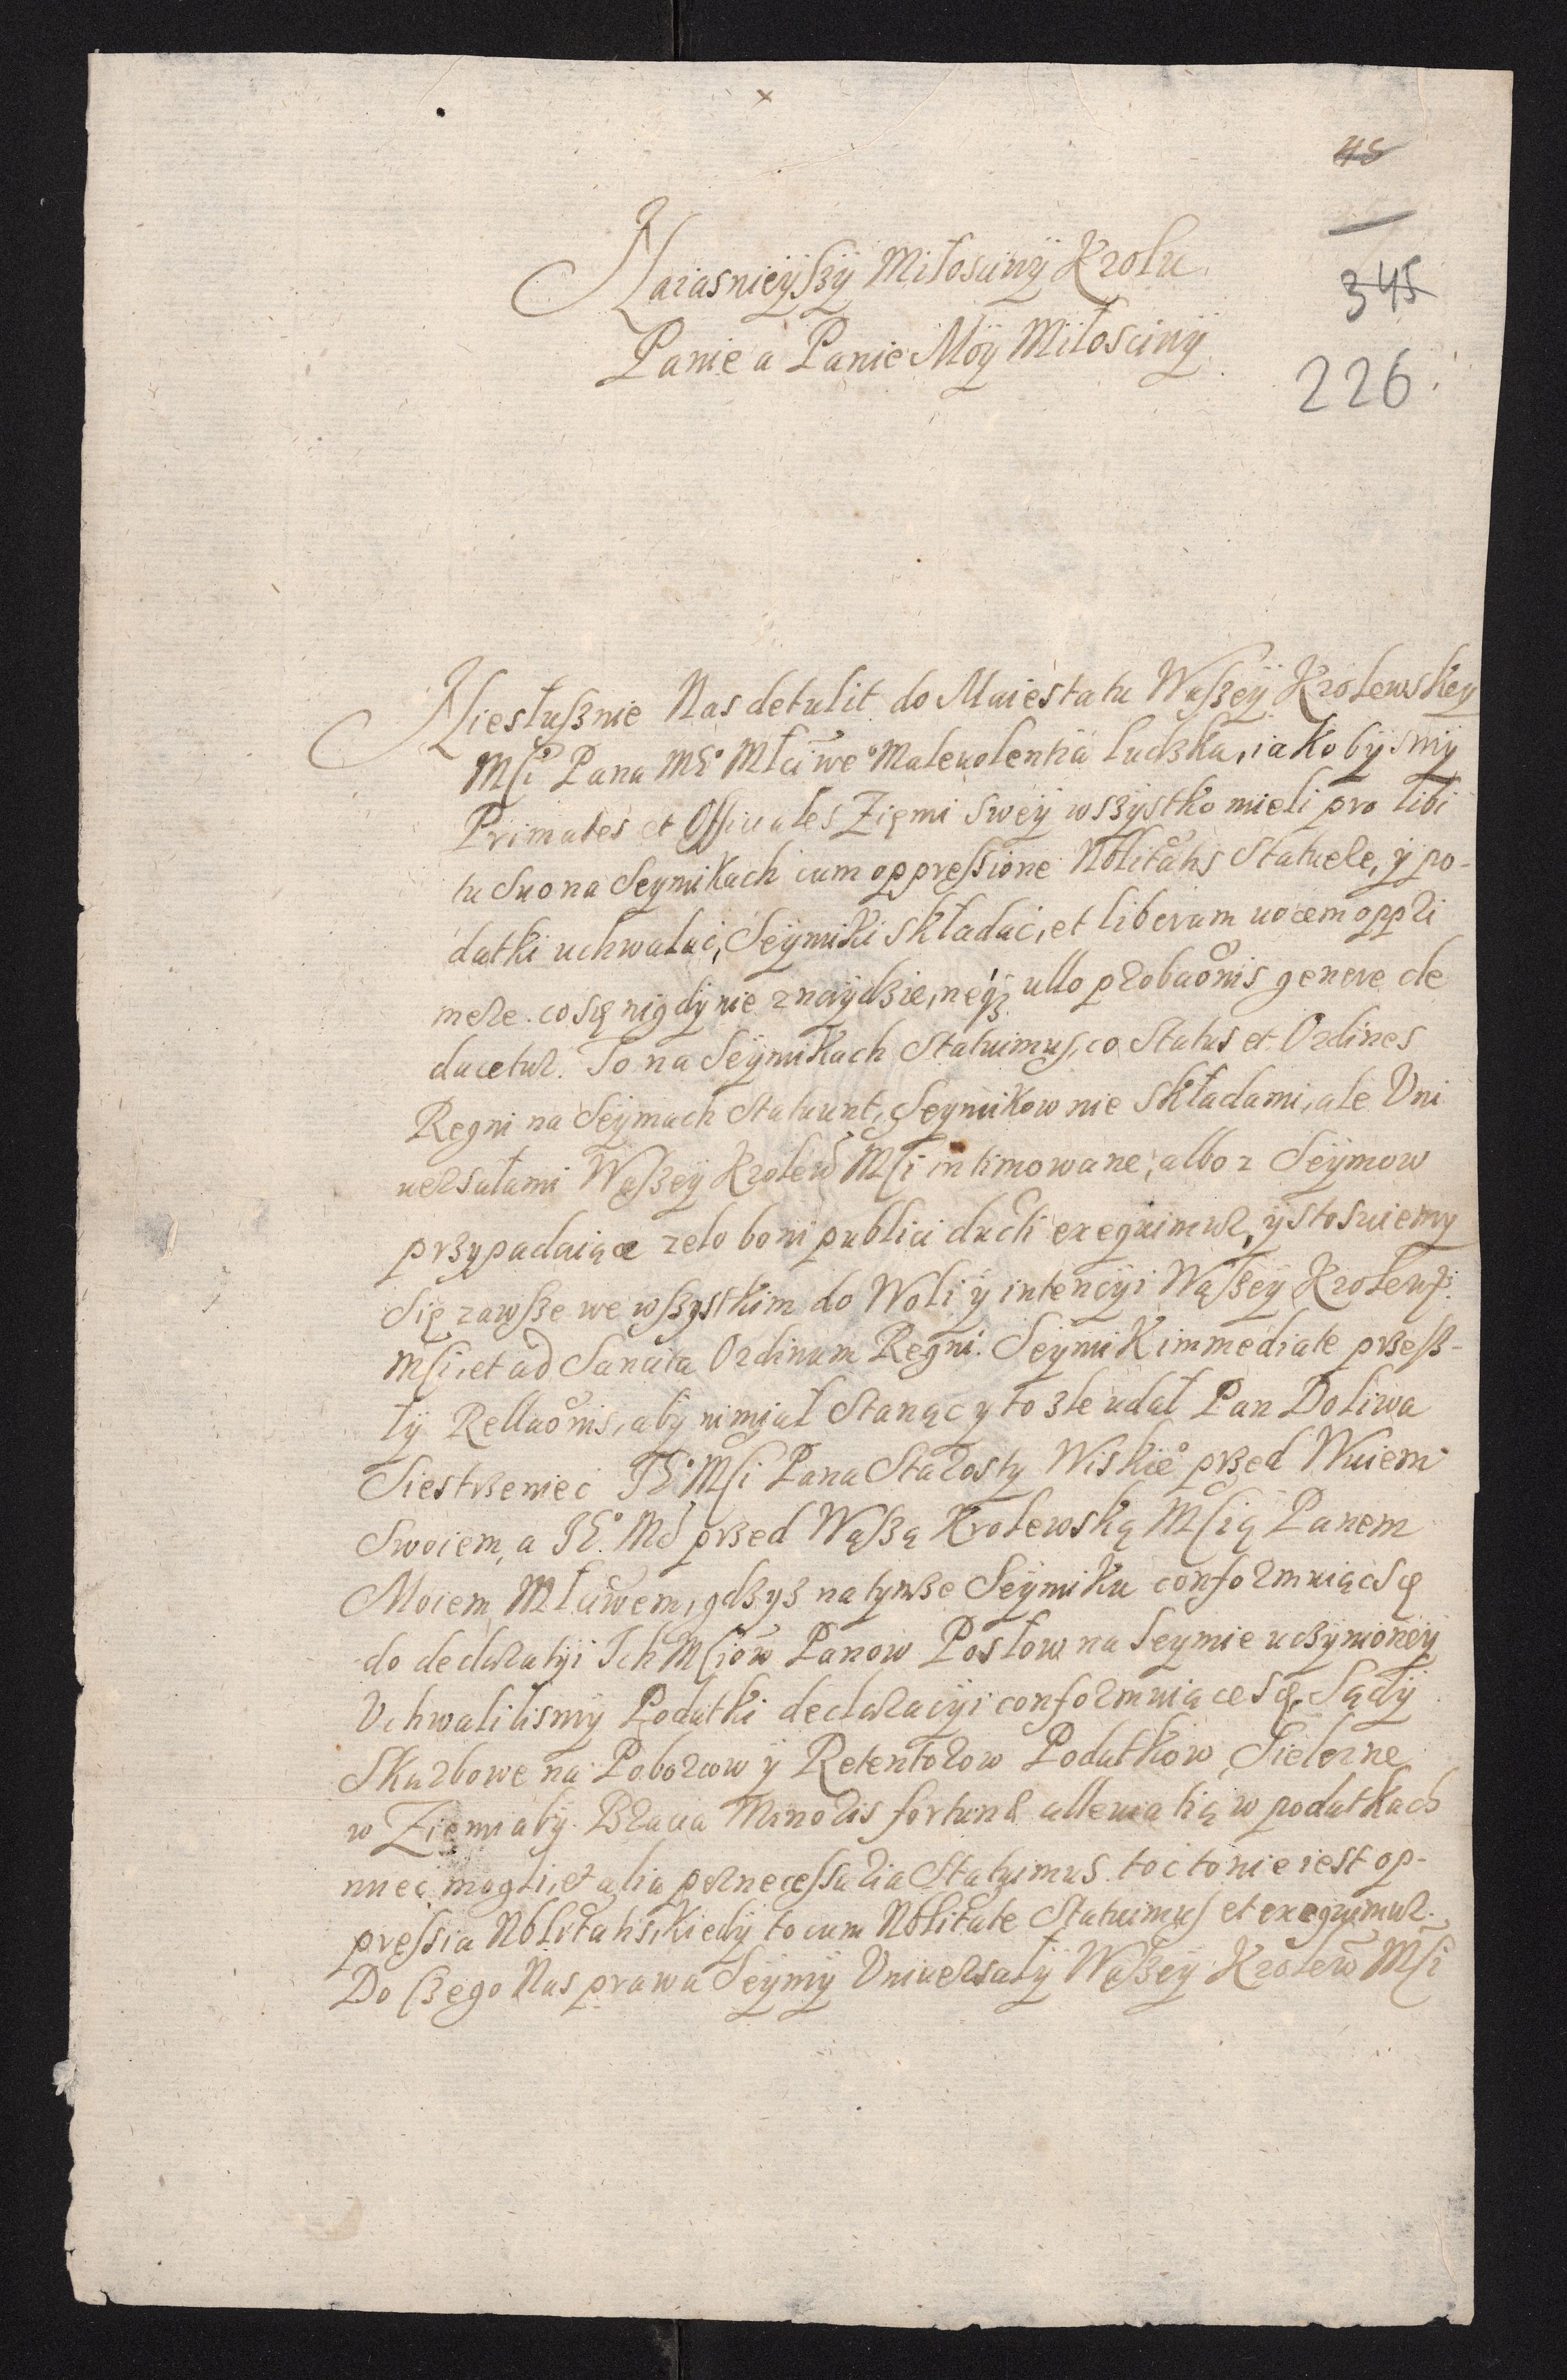 45
345
226.
Naiasnieÿszÿ Miłosciwÿ Krolu
Panie a Panie Moÿ Miłosciwÿ
Niesłusznie Nas detulit do Maiestatu Waszeÿ Krolewskey
Msci Pana mego Młciwego Maleuolentia ludzka, iakobÿsmÿ
Primates et Officiales Ziemi sweÿ wszÿstko mieli pro libi
tu suo na Seymikach cum oppressione Nobilitatis Statuere, ÿ po-
datki uchwalać, Seÿmiki składać, et liberam uocem oppri
mere. co się nigdÿ nie znaÿdzie, neq3 ullo probaonis genere de
ducetur. To na Seÿmikach Statuimus, co Status et Ordines
Regni na Seÿmach Statuunt, Seymikow nie składami, ale Vni
uersałami Waszeÿ Krolew Msci intimowane, albo z Seÿmow
przypadaiące zelo boni publici ducti exequimur, ÿ stosuiemy
się zawsze we wszystkim do Woli ÿ intencÿi Waszeÿ Krolews:
Msci, et ad Sanata Ordinum Regni. Seÿmik immediate przesz-
łÿ Rellaonis, abÿ nimiał Stanąc y to zle udał Pan Doliwa
Siestrzeniec JE° Msci Pana Starosty Wiskie° przed Wuiem
Swoiem, a JE° Mć przed Waszą Krolewską Mscią Panem
Moiem Młciwem, gdzyz na tymze Seÿmiku conformuiąc się
do declaratÿi Ich Msciow Panow Posłow na Seymie uczÿnioneÿ
Vchwalilismÿ Podatki declaracÿi conformuiące się, Sądÿ
Skarbowe na Poborcow ÿ Retentorow Podatkow, Sielezne
w Ziemi abÿ Braua Minoris fortunæ alleuiatią w podatkach
miec mogli, et alia pernecessaria Statuimus. toć to nie iest op-
pressia Nobilitatis, kiedÿ to cum Nobilitate Statuimus et exequimur.
Do czego Nas prawa Seÿmÿ Vniuersałÿ Waszeÿ Krolew Msci